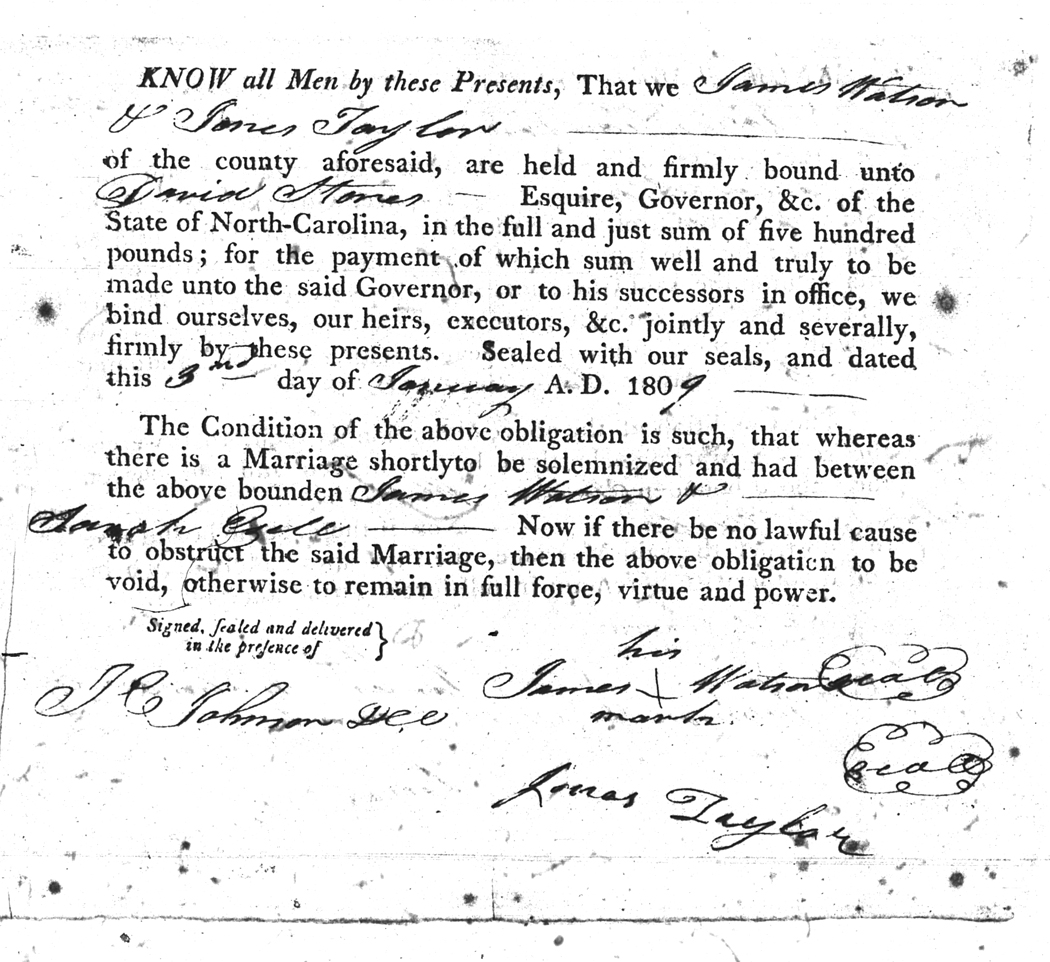 KNOW all Men by these Presents, That we James Watson
& Jones Taylor
of the county aforesaid, are held and firmly bound unto
David Stones Esquire, Governor, &c. of the
State of North-Carolina, in the full and just sum of five hundred
pounds; for the payment of which sum well and truly to be
made unto the said Governor, or to his successors in office, we
bind ourselves, our heirs, executors, &c. jointly and severally,
firmly by these presents. Sealed with our seals, and dated
this 3nd day of January A. D. 1809
The Condition of the above obligation is such, that whereas
there is a Marriage shortlyto be solemnized and had between
the above bounden James Watson &
Sarah Now if there be no lawful cause
to obstruct the said Marriage, then the above obligation to be
void, otherwise to remain in full force, virtue and power.
Signed, sealed and delivered
in the presence of
his
James Watson seal
mark
J C Johnson DCC
seal
Jonas Taylor